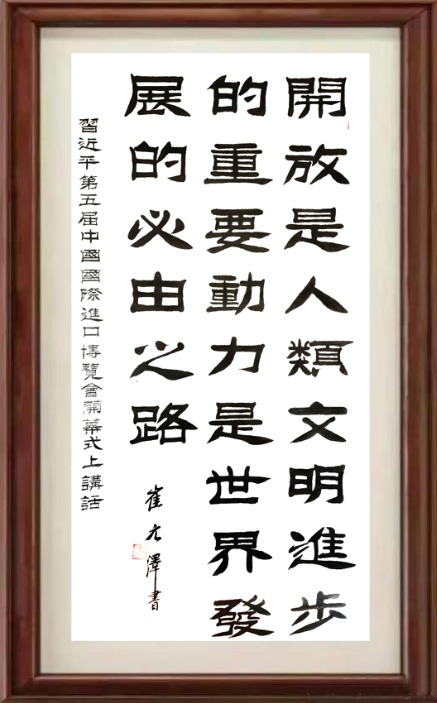 開放是人類文明進步
的重要動力是世界發
展的必由之路
習近平第五届中國國際進口博覽會開幕式上講話
崔
澤書